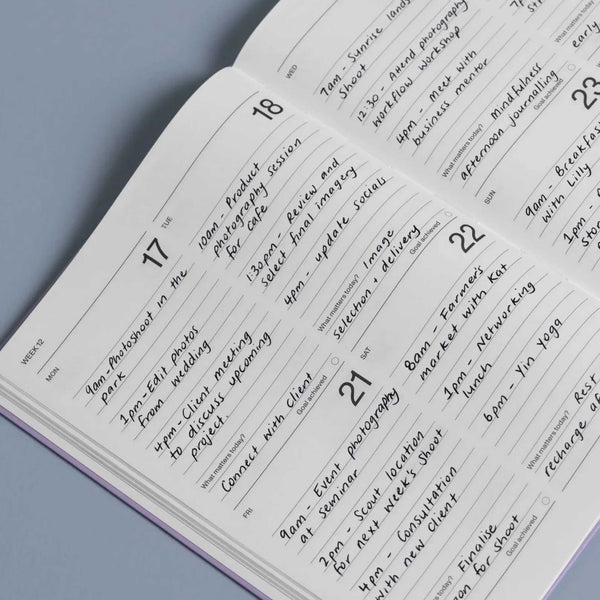 WEEK 12
MON
17
9am - Photoshoot in the
park
1pm - Edit photos
from wedding
4pm - Client meeting
to discuss upcoming
project.
What matters today?
Connect with client
Goal achieved
TUE
18
10am - Product
photography session
for cafe
1:30pm - Review and
select final imagery
4pm - update socials
What matters today? Image
selection + delivery
Goal achieved
WED
7am - Sunrise
Shoot
12:30 - Attend photography
workflow workshop
4pm - Meet with
business mentor
What matters today? Mindfulness
afternoon journalling
Goal achieved
What matters today?
early
FRI
21
9am - Event photography
at seminar
2pm - Scout location
for next week's shoot
4pm - Consultation
with new client
Finalise
for shoot
Goal achieved
SAT
22
8am - Farmer's
market with Kat
1pm - Networking
lunch
6pm - Yin Yoga
What matters today? Rest
recharge
SUN
23
9am - Breakfast
with Lilly
1pm -